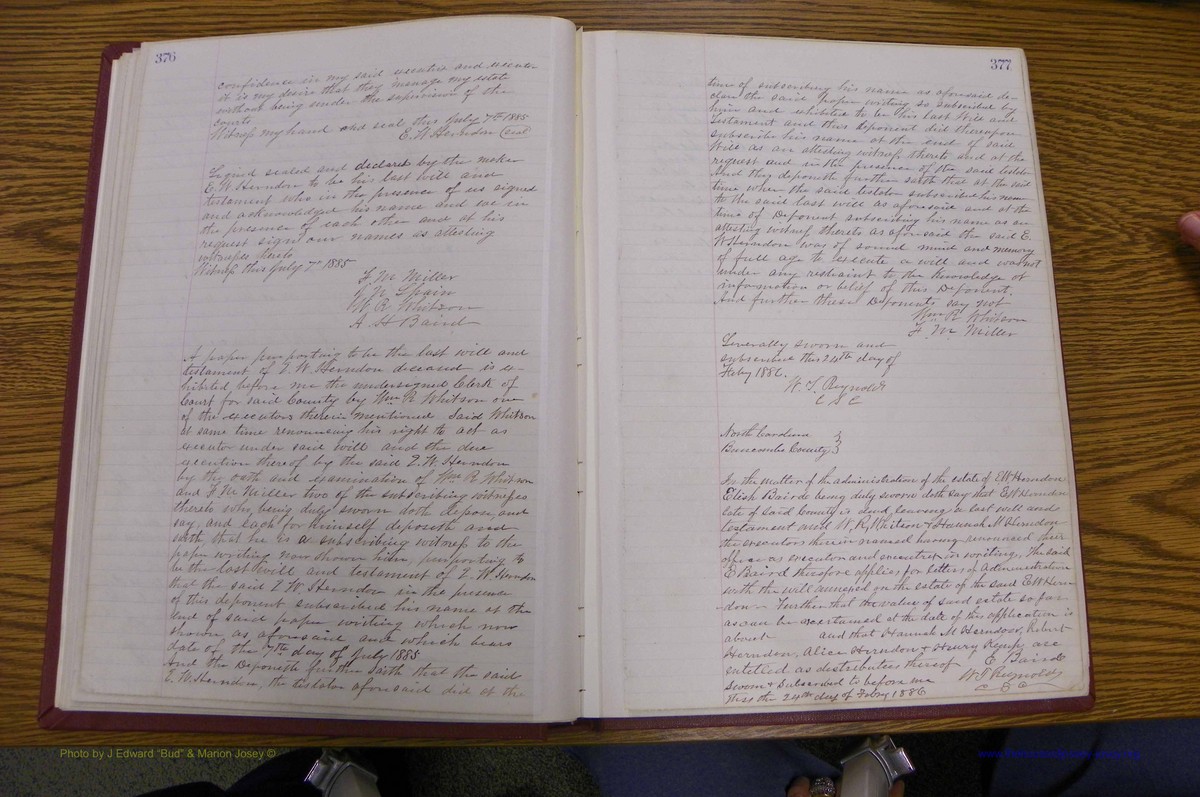 376
confidence in my said executrix and executor
it is my desire that they manage my estate
without being under the supervision of the
courts.
Witness my hand and seal this July 7th 1885
E. W. Herndon (seal)
Signed sealed and declared by the maker
E. W. Herndon to be his last will and
testament who in the presence of us signed
and acknowledged his name and we in
the presence of each other and at his
request sign our names as attesting
witnesses hereto
Witness this July 7th 1885
F. M. Miller
W. N. Spain
W. R. Whitson
A. H. Baird
A paper purporting to be the last will and
testament of E. W. Herndon deceased is ex-
hibited before me the undersigned Clerk of
Court for said County by Wm R Whitson one
of the executors therein mentioned Said Whitson
at same time renouncing his right to act as
executor under said will and the due
execution thereof by the said E. W. Herndon
by the oath and examination of Wm R Whitson
and F. M. Miller two of the subscribing witnesses
thereto who being duly sworn doth depose and
say and each for himself deposeth and
saith that he is a subscribing witness to the
paper writing now shown him, purporting to
be the last will and testament of E. W. Herndon
that the said E. W. Herndon in the presence
of this deponent subscribed his name at the
end of said paper writing which now
shown as aforesaid and which bears
date of the 7th day of July 1885
And the Deponent further saith that the said
E. W. Herndon, the testator aforesaid did at the
377
time of subscribing his name as aforesaid de-
clare the said paper writing so subscribed by
him and exhibited to be his last Will and
Testament and this Deponent did thereupon
subscribe his name at the end of said
Will as an attesting witness thereto and at the
request and in the presence of the said testator
And they deposeth further saith that at the said
time when the said testator subscribed his name
to the said last will as aforesaid and at the
time of Deponent subscribing his name as an
attesting witness thereto as aforesaid the said E.
W Herndon was of sound mind and memory
of full age to execute a will and was not
under any restraint to the knowledge of
information or belief of this Deponent.
And further these Deponents say not
Wm R Whitson
F. M. Miller
Severally sworn and
subscribed this 24th day of
Feby 1886.
W. T. Reynolds
C S C
North Carolina
Buncombe County
In the matter of the administration of the estate of E W Herndon
Elish Bairde being duly sworn doth say that E W Herndon
late of said County is dead leaving a last will and
testament and W. R. Whitson & Hannah M Herndon
the executors therein named having renounced their
office as executor and executrix in writing. The said
E Baird therefore applies for letters of Administration
with the will annexed on the estate of the said E W Hern-
don Further that the value of said estate so far
as can be ascertained at the date of this application is
about and that Hannah M Herndon, Robert
Herndon, Alice Herndon & Henry are
entitled as distributees thereof E Baird
Sworn & Subscribed to before me W T Reynolds
this the 24th day of Febry 1886 C S C
Photo by J Edward "Bud" & Marion Josey ©